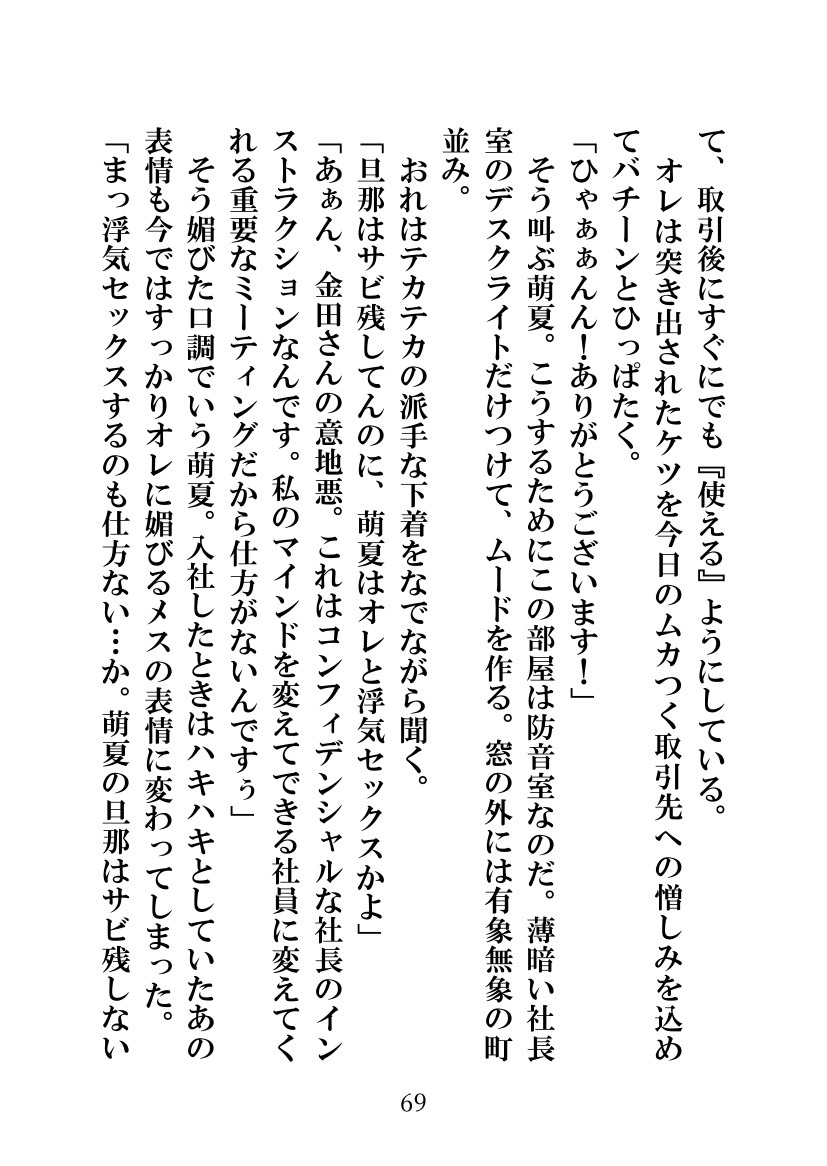 て、取引後にすぐにでも『使える』ようにしている。
　オレは突き出されたケツを今日のムカつく取引先への憎しみを込め
てバチーンとひっぱたく。
「ひゃぁぁんん！ありがとうございます！」
　そう叫ぶ萌夏。こうするためにこの部屋は防音室なのだ。薄暗い社長
室のデスクライトだけつけて、ムードを作る。窓の外には有象無象の町
並み。
　おれはテカテカの派手な下着をなでながら聞く。
「旦那はサビ残してんのに、萌夏はオレと浮気セックスかよ」
「あぁん、金田さんの意地悪。これはコンフィデンシャルな社長のイン
ストラクションなんです。私のマインドを変えてできる社員に変えてく
れる重要なミーティングだから仕方がないんですぅ」
　そう媚びた口調でいう萌夏。入社したときはハキハキとしていたあの
表情も今ではすっかりオレに媚びるメスの表情に変わってしまった。
「まっ浮気セックスするのも仕方ない…か。萌夏の旦那はサビ残しない
69